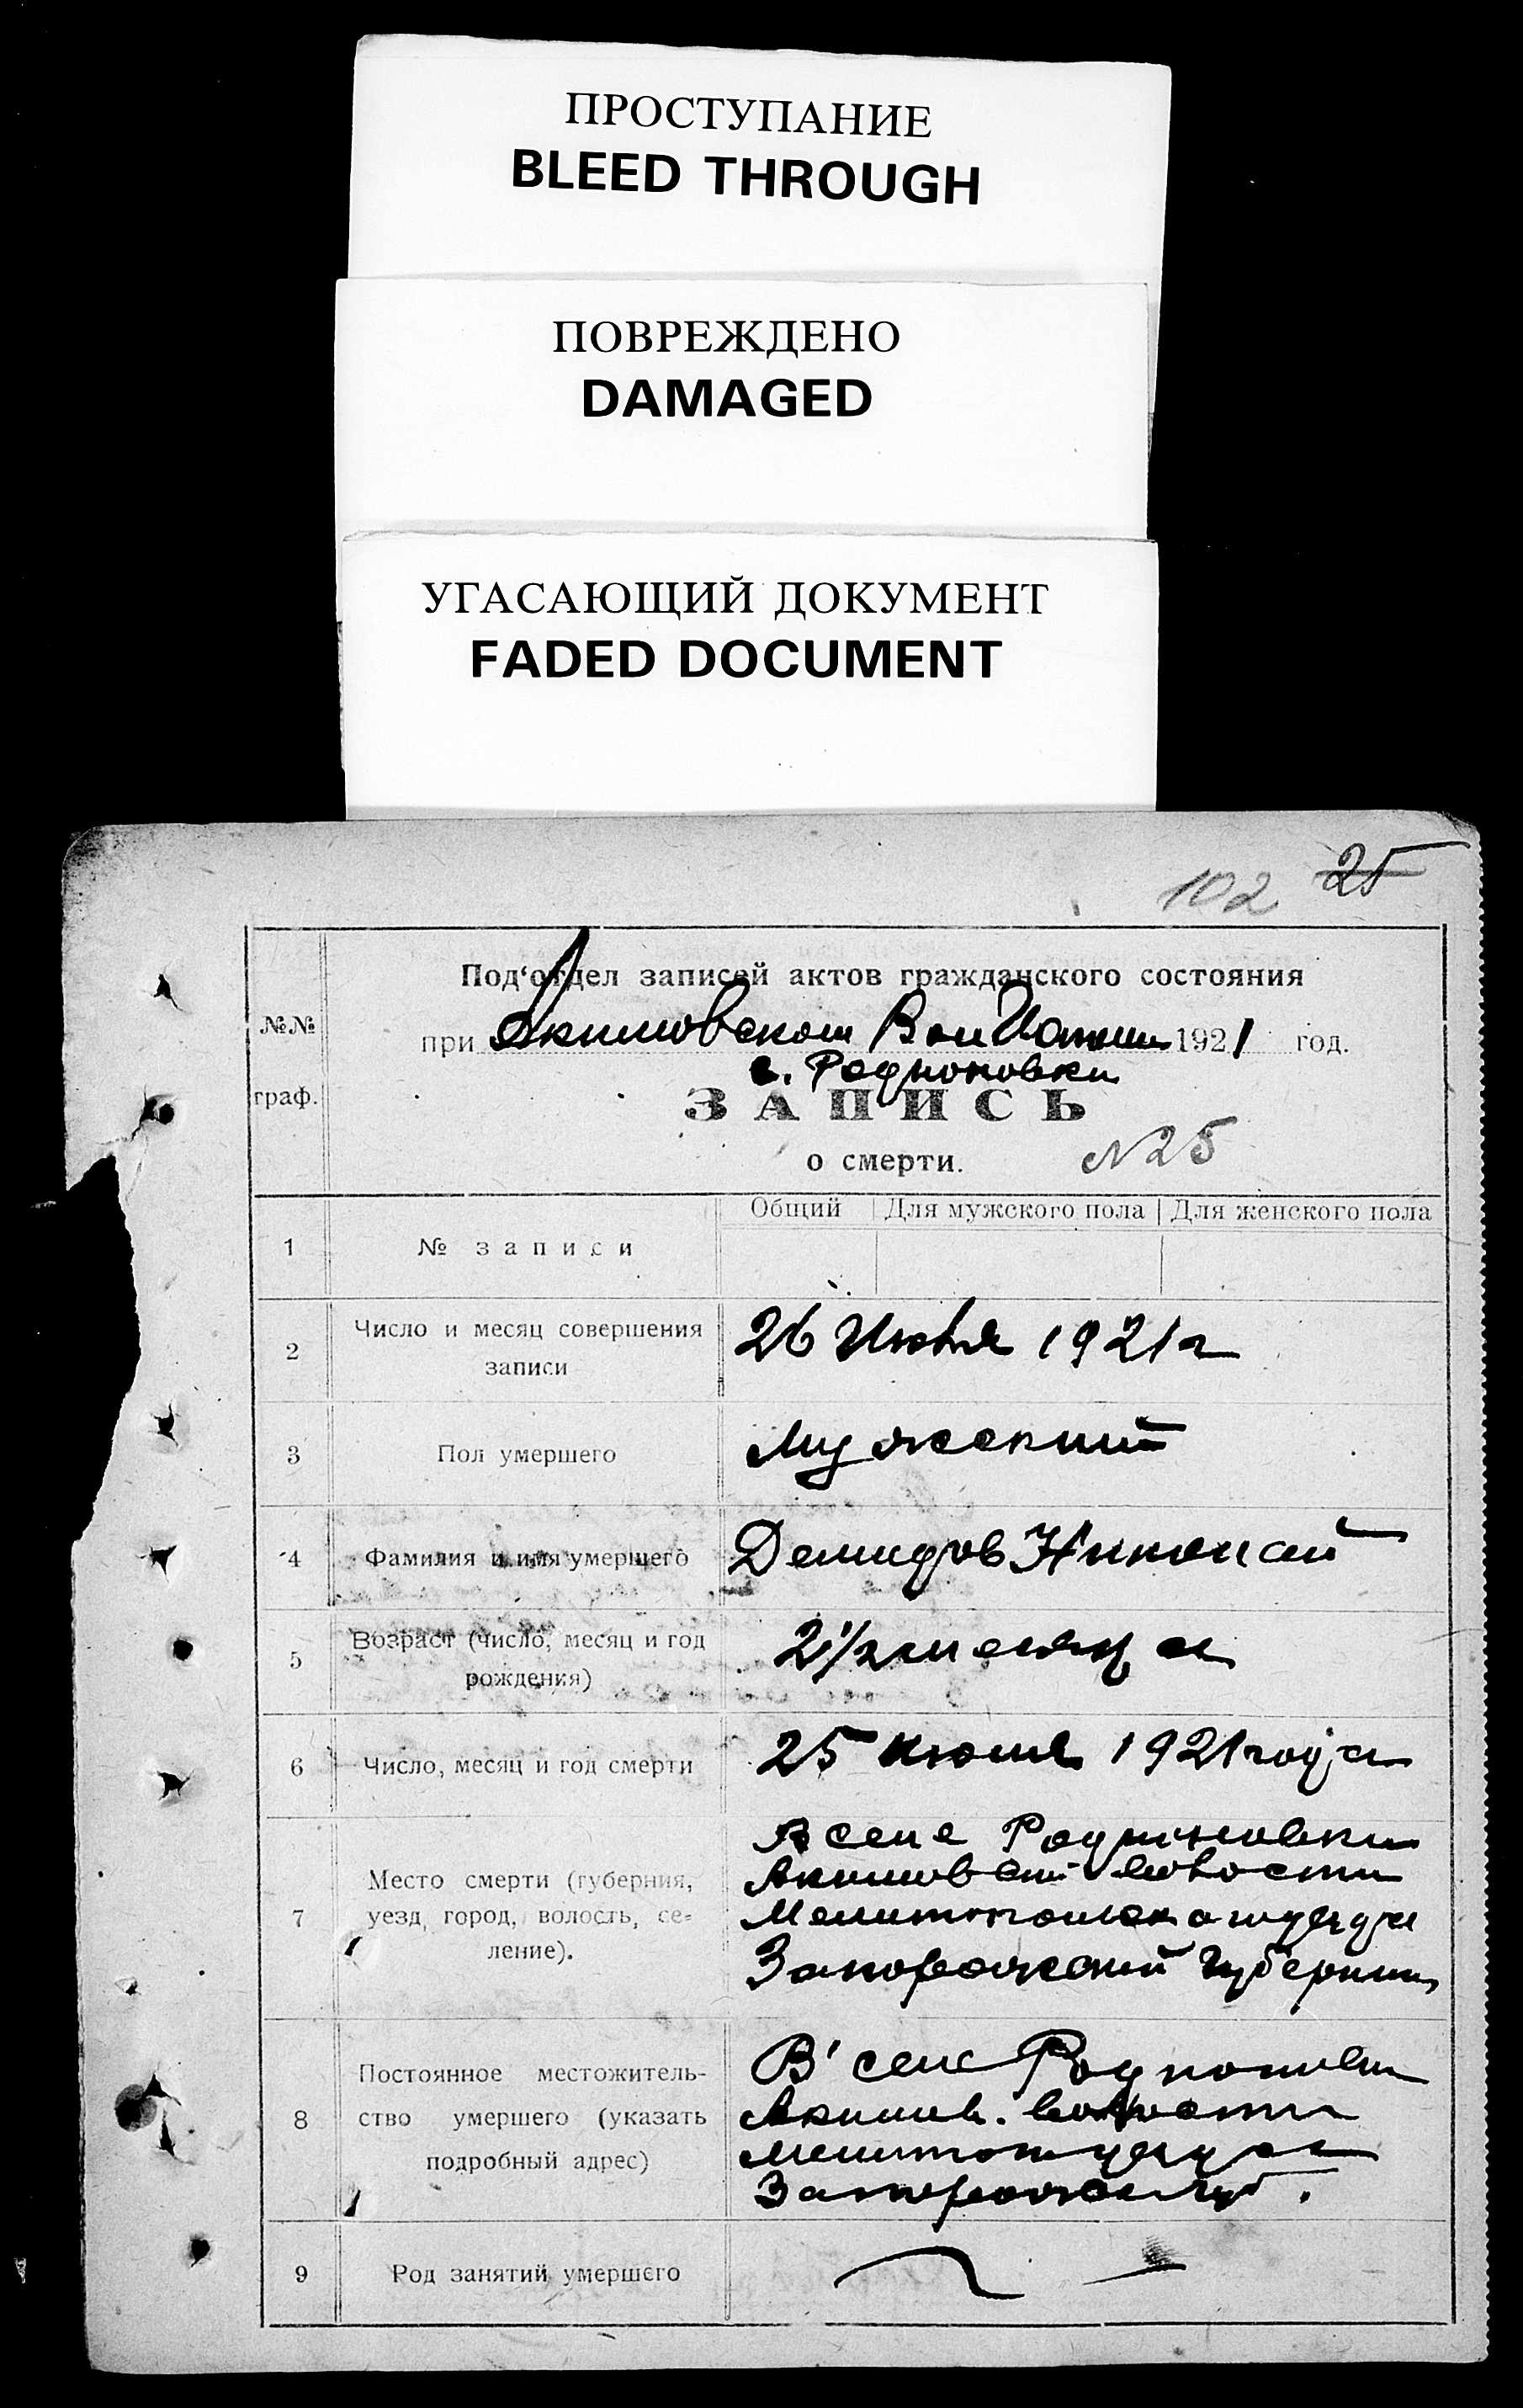 ПРОСТУПАНИЕ
BLEED THROUGH
ПОВРЕЖДЕНО
DAMAGED
УГАСАЮЩИЙ ДОКУМЕНТ
FADED DOCUMENT
102 25
№№ граф.
Под‘отдел записей актов гражданского состояния
при Акимовском Вол 1921 год.
с. Родионовки
ЗАПИСЬ
о смерти. N25
Общий Для мужского пола Для женского пола
1 № записи
2 Число и месяц совершения
записи
26 Июля 1921 г
3 Пол умершего Мужеский
4 Фамилия и имя умершего Демидов Николай
5 Возраст (число, месяц и год
рождения)
2 1/2 месяца
6 Число, месяц и год смерти 25 июля 1921 года
7 Место смерти (губерния,
уезд, город, волость, се-
ление).
В селе Родионовки
Акимовской волости
Мелитопольского уезда
Запорожской Губернии
8 Постоянное местожитель-
ство умершего (указать
подробный адрес)
В селе Родионовки
Акимов. волости
Мелитоп уезда
Запорожск губ.
9 Род занятий умершего